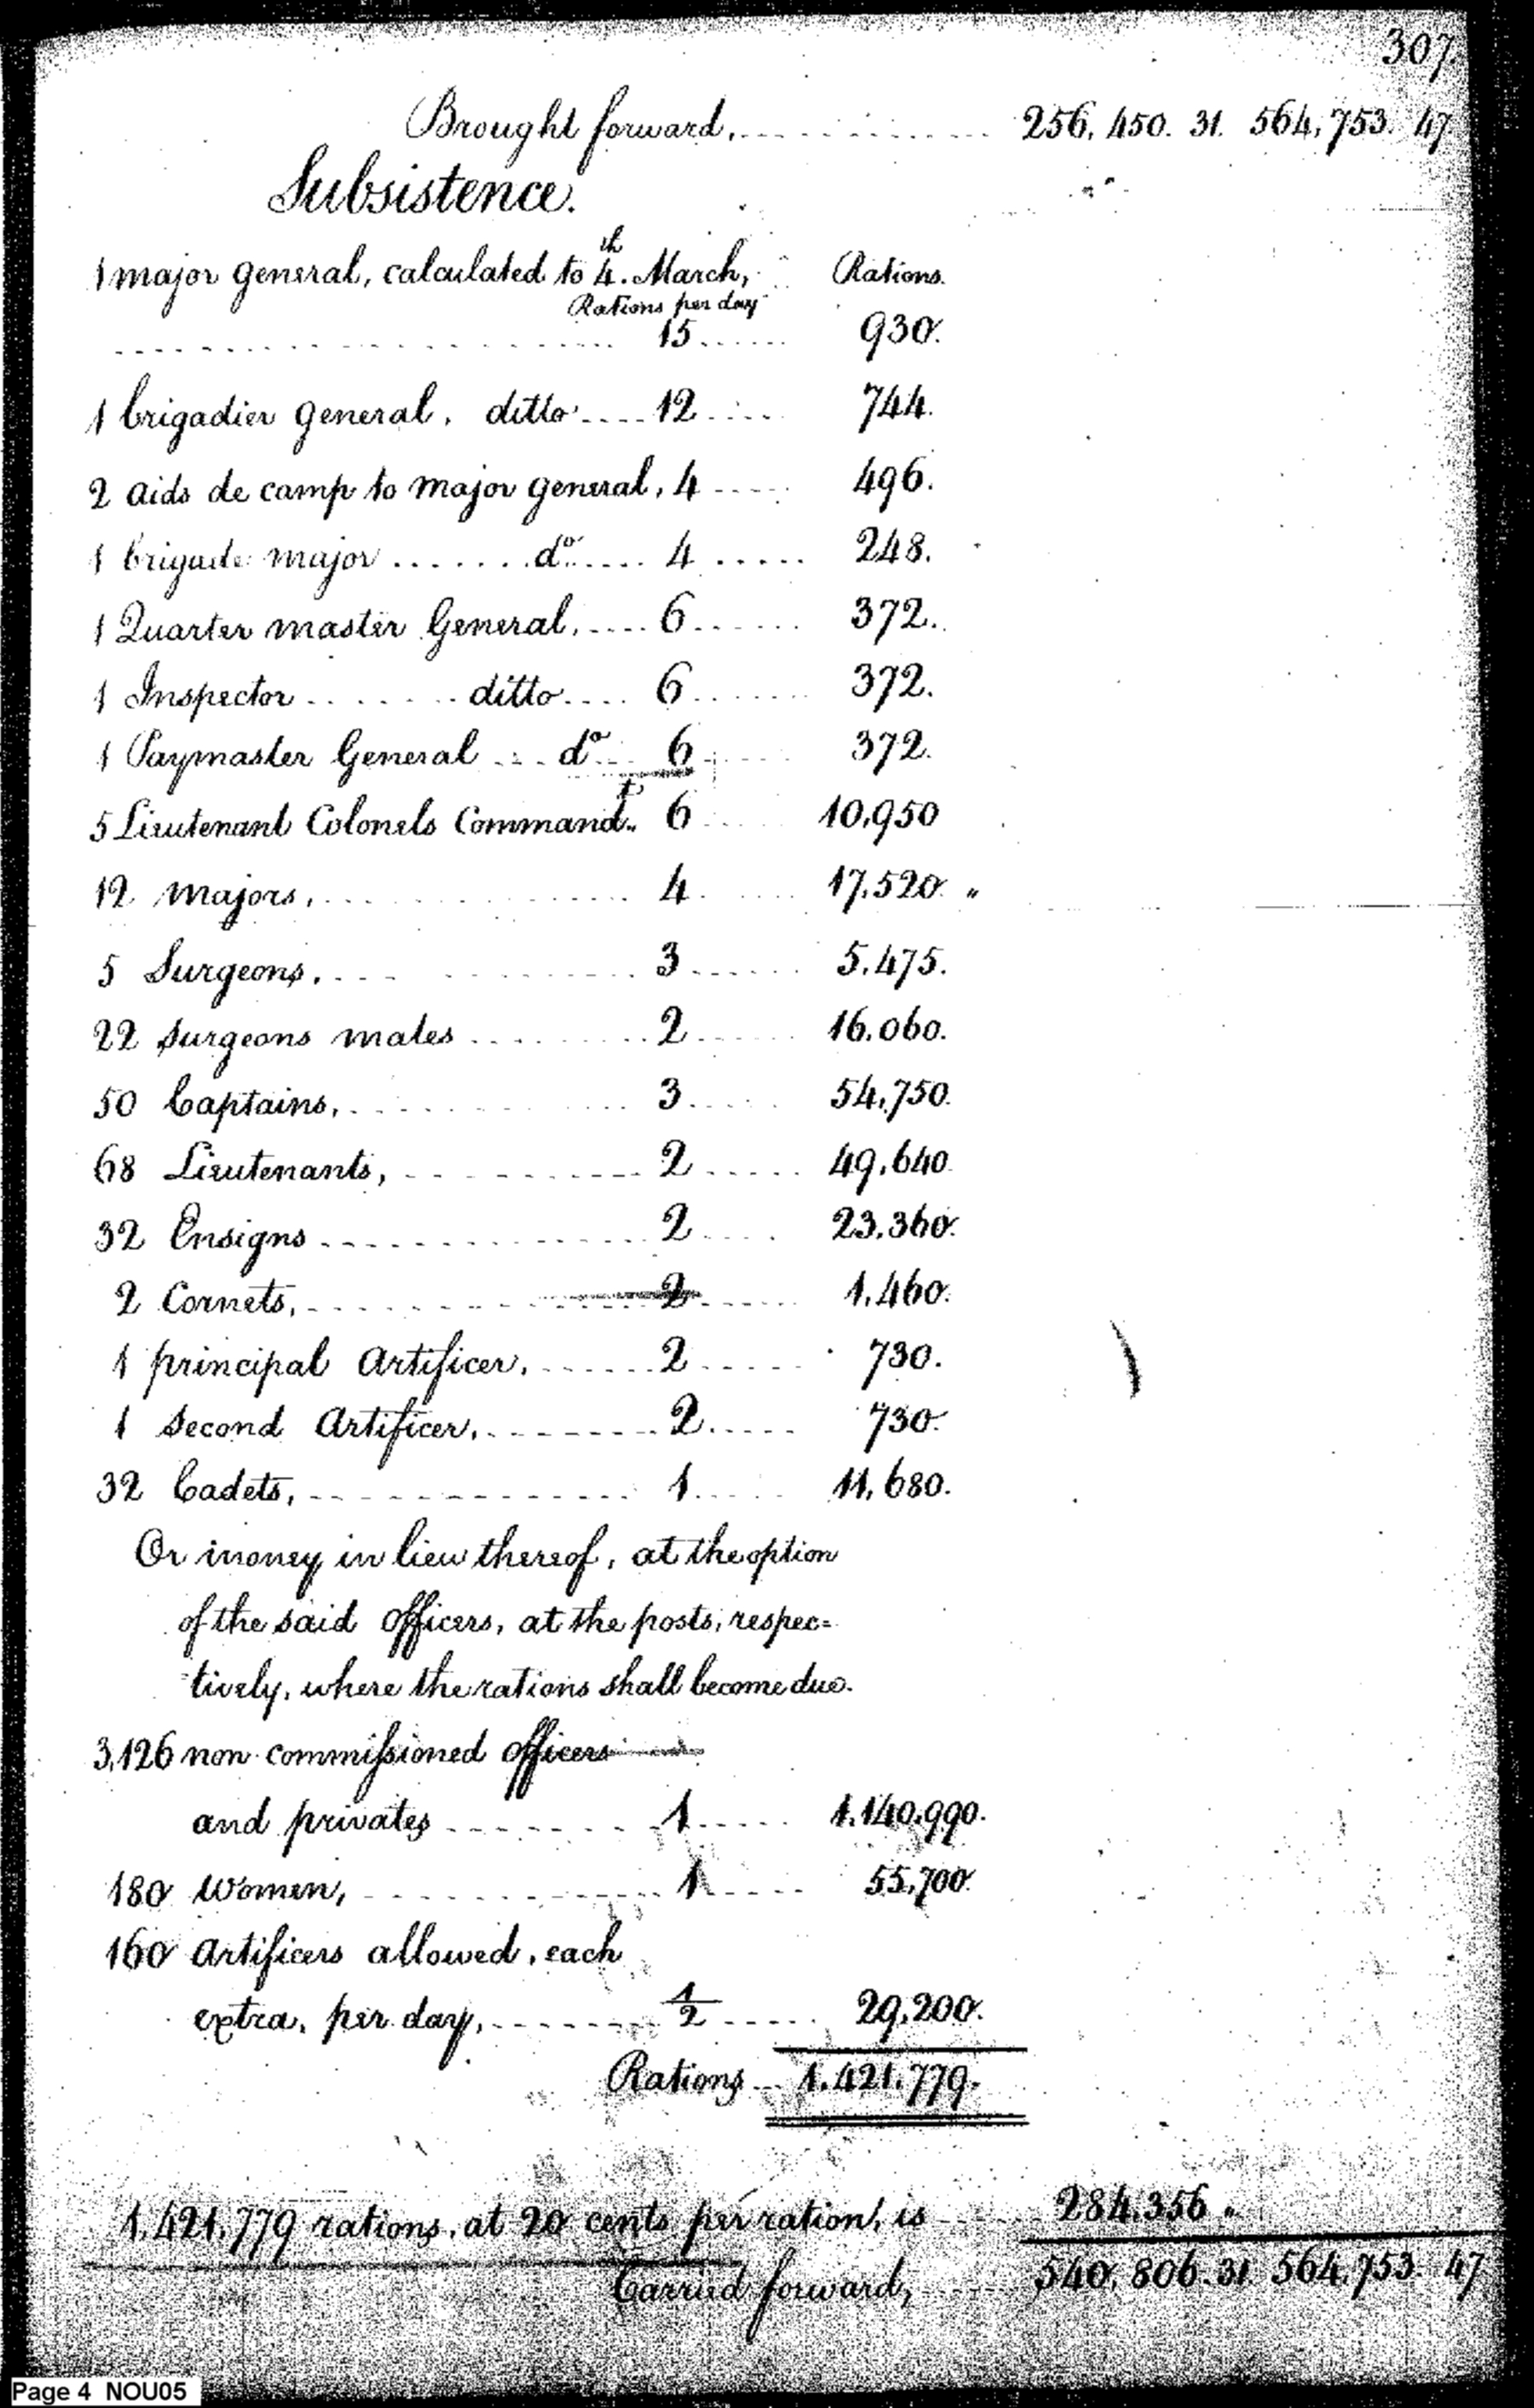 307.
Brought forward, 256,450. 31. 564,753. 47
Subsistence.
1 major general, calculated to 4.th March, Rations.
Rations per day
15 930.
1 brigadier general, ditto 12 744.
2 aids de camp to major general, 4 496.
1 brigade major do. 4 248.
1 Quarter master General, 6 372.
1 Inspector ditto 6 372.
1 Paymaster General do 6 372.
5 Lieutenant Colonels Command.t 6 10,950
12 majors, 4 17,520. "
5 Surgeons, 3 5.475.
22 Surgeons mates 2 16.060.
50 Captains, 3 54,750.
68 Lieutenants, 2 49,640
32 Ensigns 2 23,360.
2 Cornets, 2 1,460.
1 principal Artificer, 2 730.
1 Second Artificer, 2 730.
32 Cadets, 1 11,680.
Or money in lieu thereof, at the option
of the said officers, at the posts, respec=
tively, where the rations shall become due.
3,126 non commissioned officers
and privates 1 1.140.990.
180 Women, 1 55,700.
160 artificers allowed, each
extra, per day, 1/2 29,200.
Rations 1.421.779.
1.421.779 rations, at 20 cents per ration, is 284,356 "
Carried forward, 540,806. 31. 564,753. 47
Page 4 NOU05